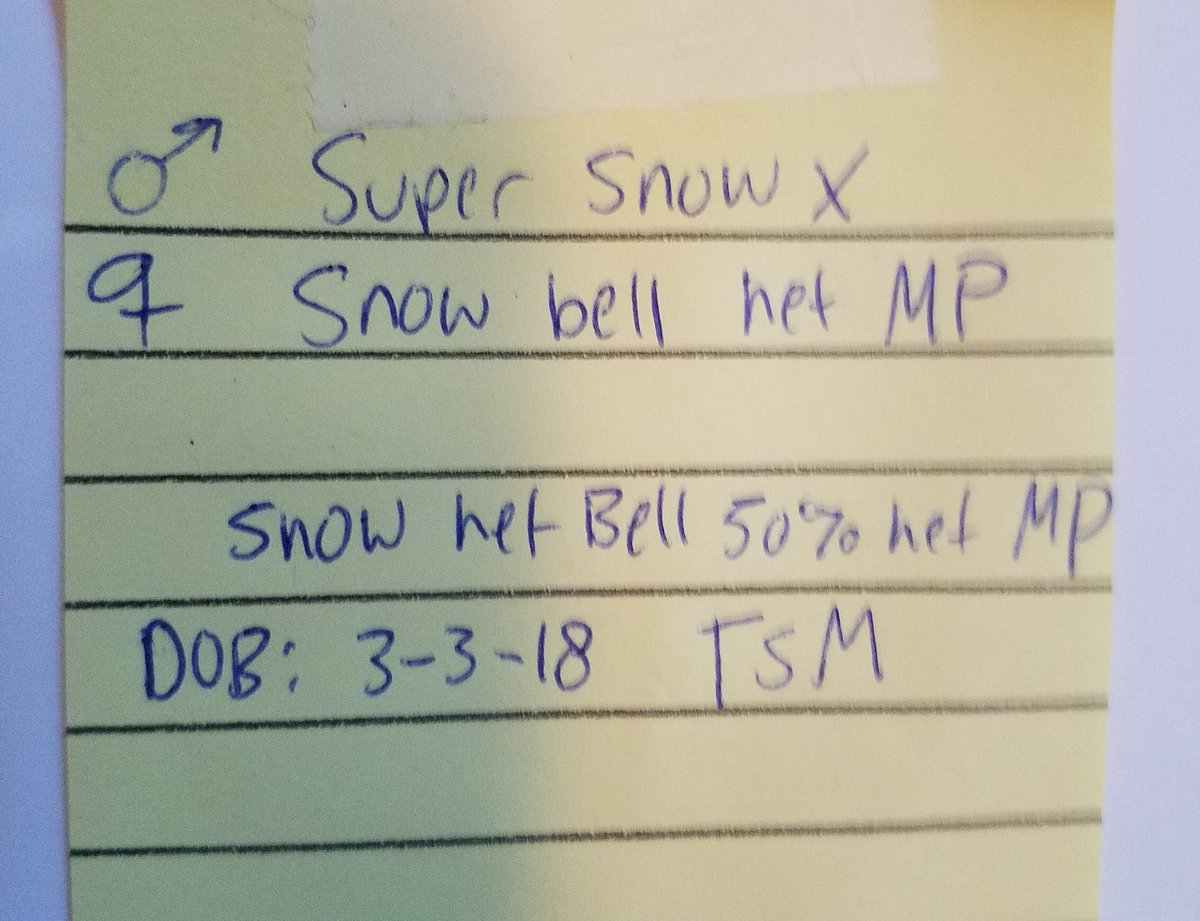 ♂ Super Snow X
♀ Snow bell het MP
Snow het Bell 50% het MP
DOB: 3-3-18 TSM